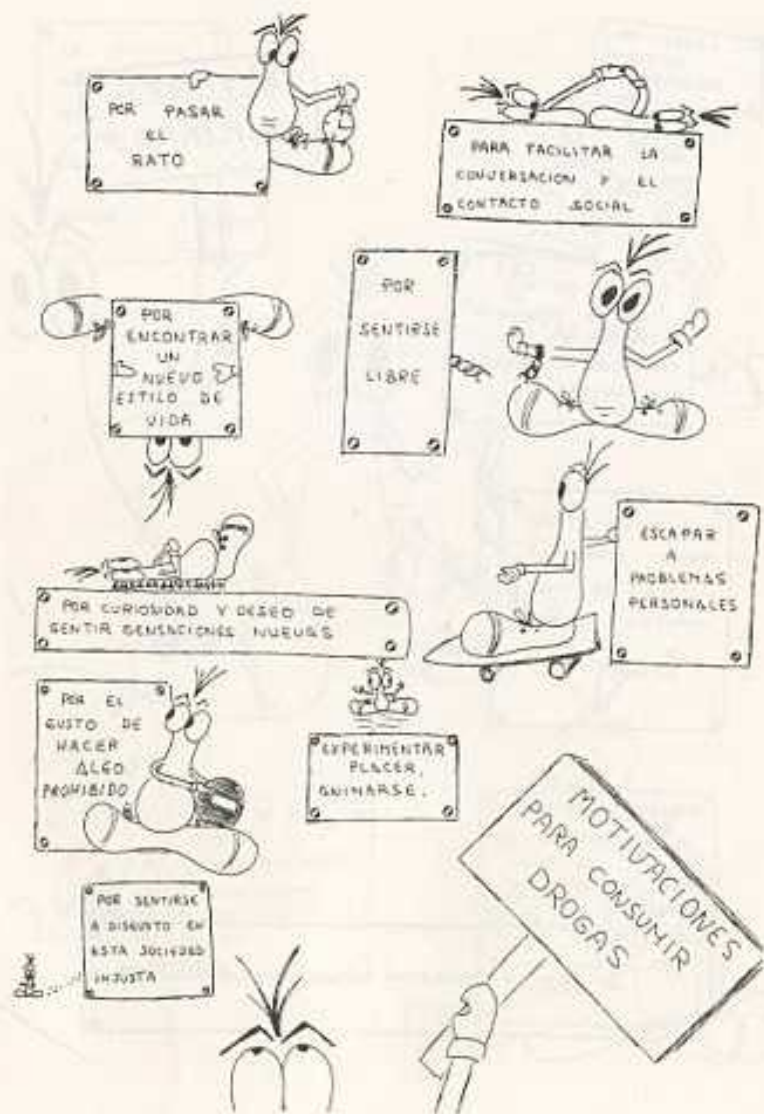 POR PASAR
EL
RATO
PARA FACILITAR LA
CONVERSACION Y EL
CONTACTO SOCIAL
POR
ENCONTRAR
UN
NUEVO
ESTILO DE
VIDA
POR
SENTIRSE
LIBRE
ESCAPAR
A
PROBLEMAS
PERSONALES
POR CURIOSIDAD Y DESEO DE
SENTIR SENSACIONES NUEVAS
POR EL
GUSTO DE
HACER
ALGO
PROHIBIDO
EXPERIMENTAR
PLACER,
ANIMARSE.
MOTIVACIONES
PARA CONSUMIR
DROGAS
POR SENTIRSE
A DISGUSTO EN
ESTA SOCIEDAD
INJUSTA